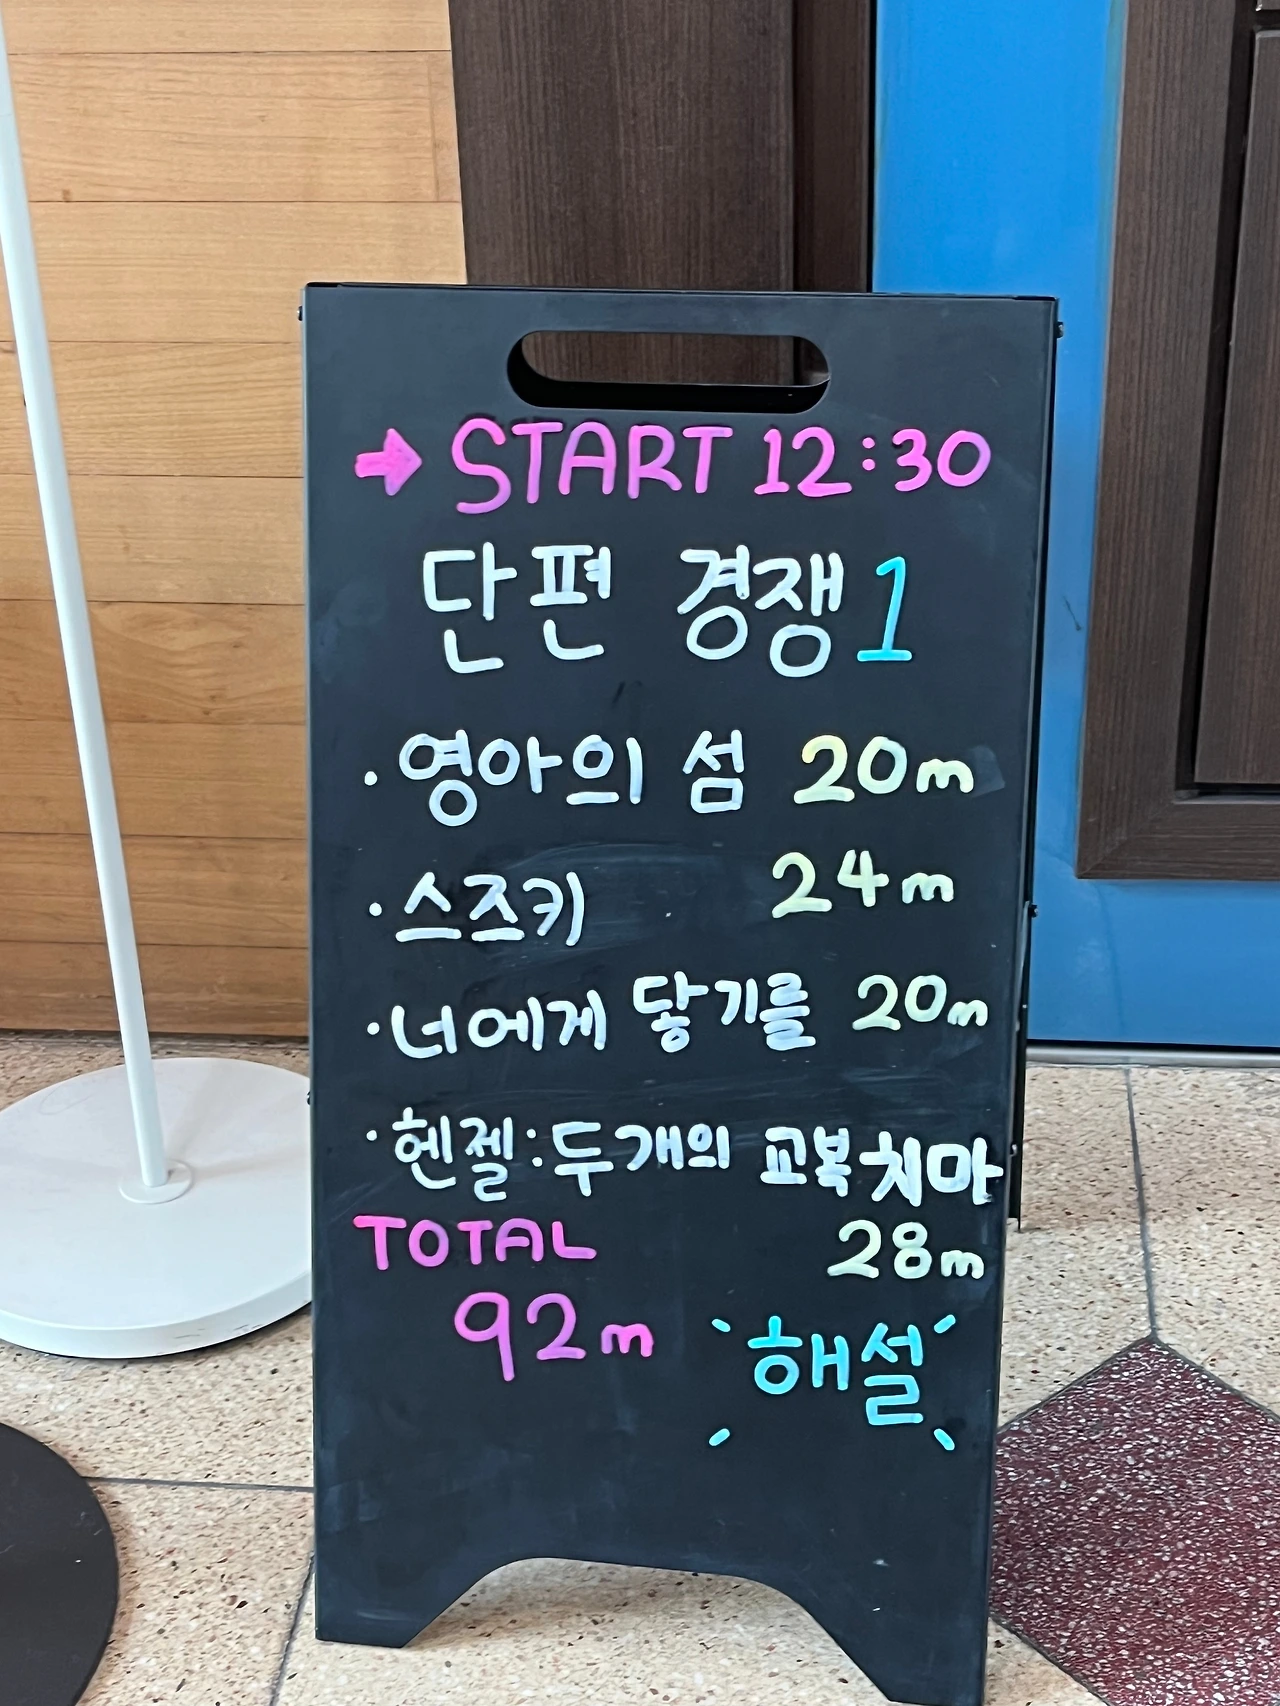 ➡ START 12:30
단편 경쟁1
· 영아의 섬 20m
· 스즈키 24m
· 너에게 닿기를 20m
· 헨젤: 두 개의 교복치마
TOTAL 28m
92m 해설